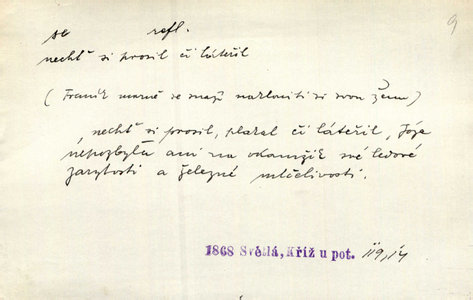 se refl. 9
nechť si prosil či láteřil
(Franěk marně se snaží nakloniti si svou ženu)
„nechť si prosil, plakal či láteřil, Józa
nepozbyla ani na okamžik své ledové
zarytosti a železné mlčelivosti.
1868 Světlá, Kříž u pot. 119,14